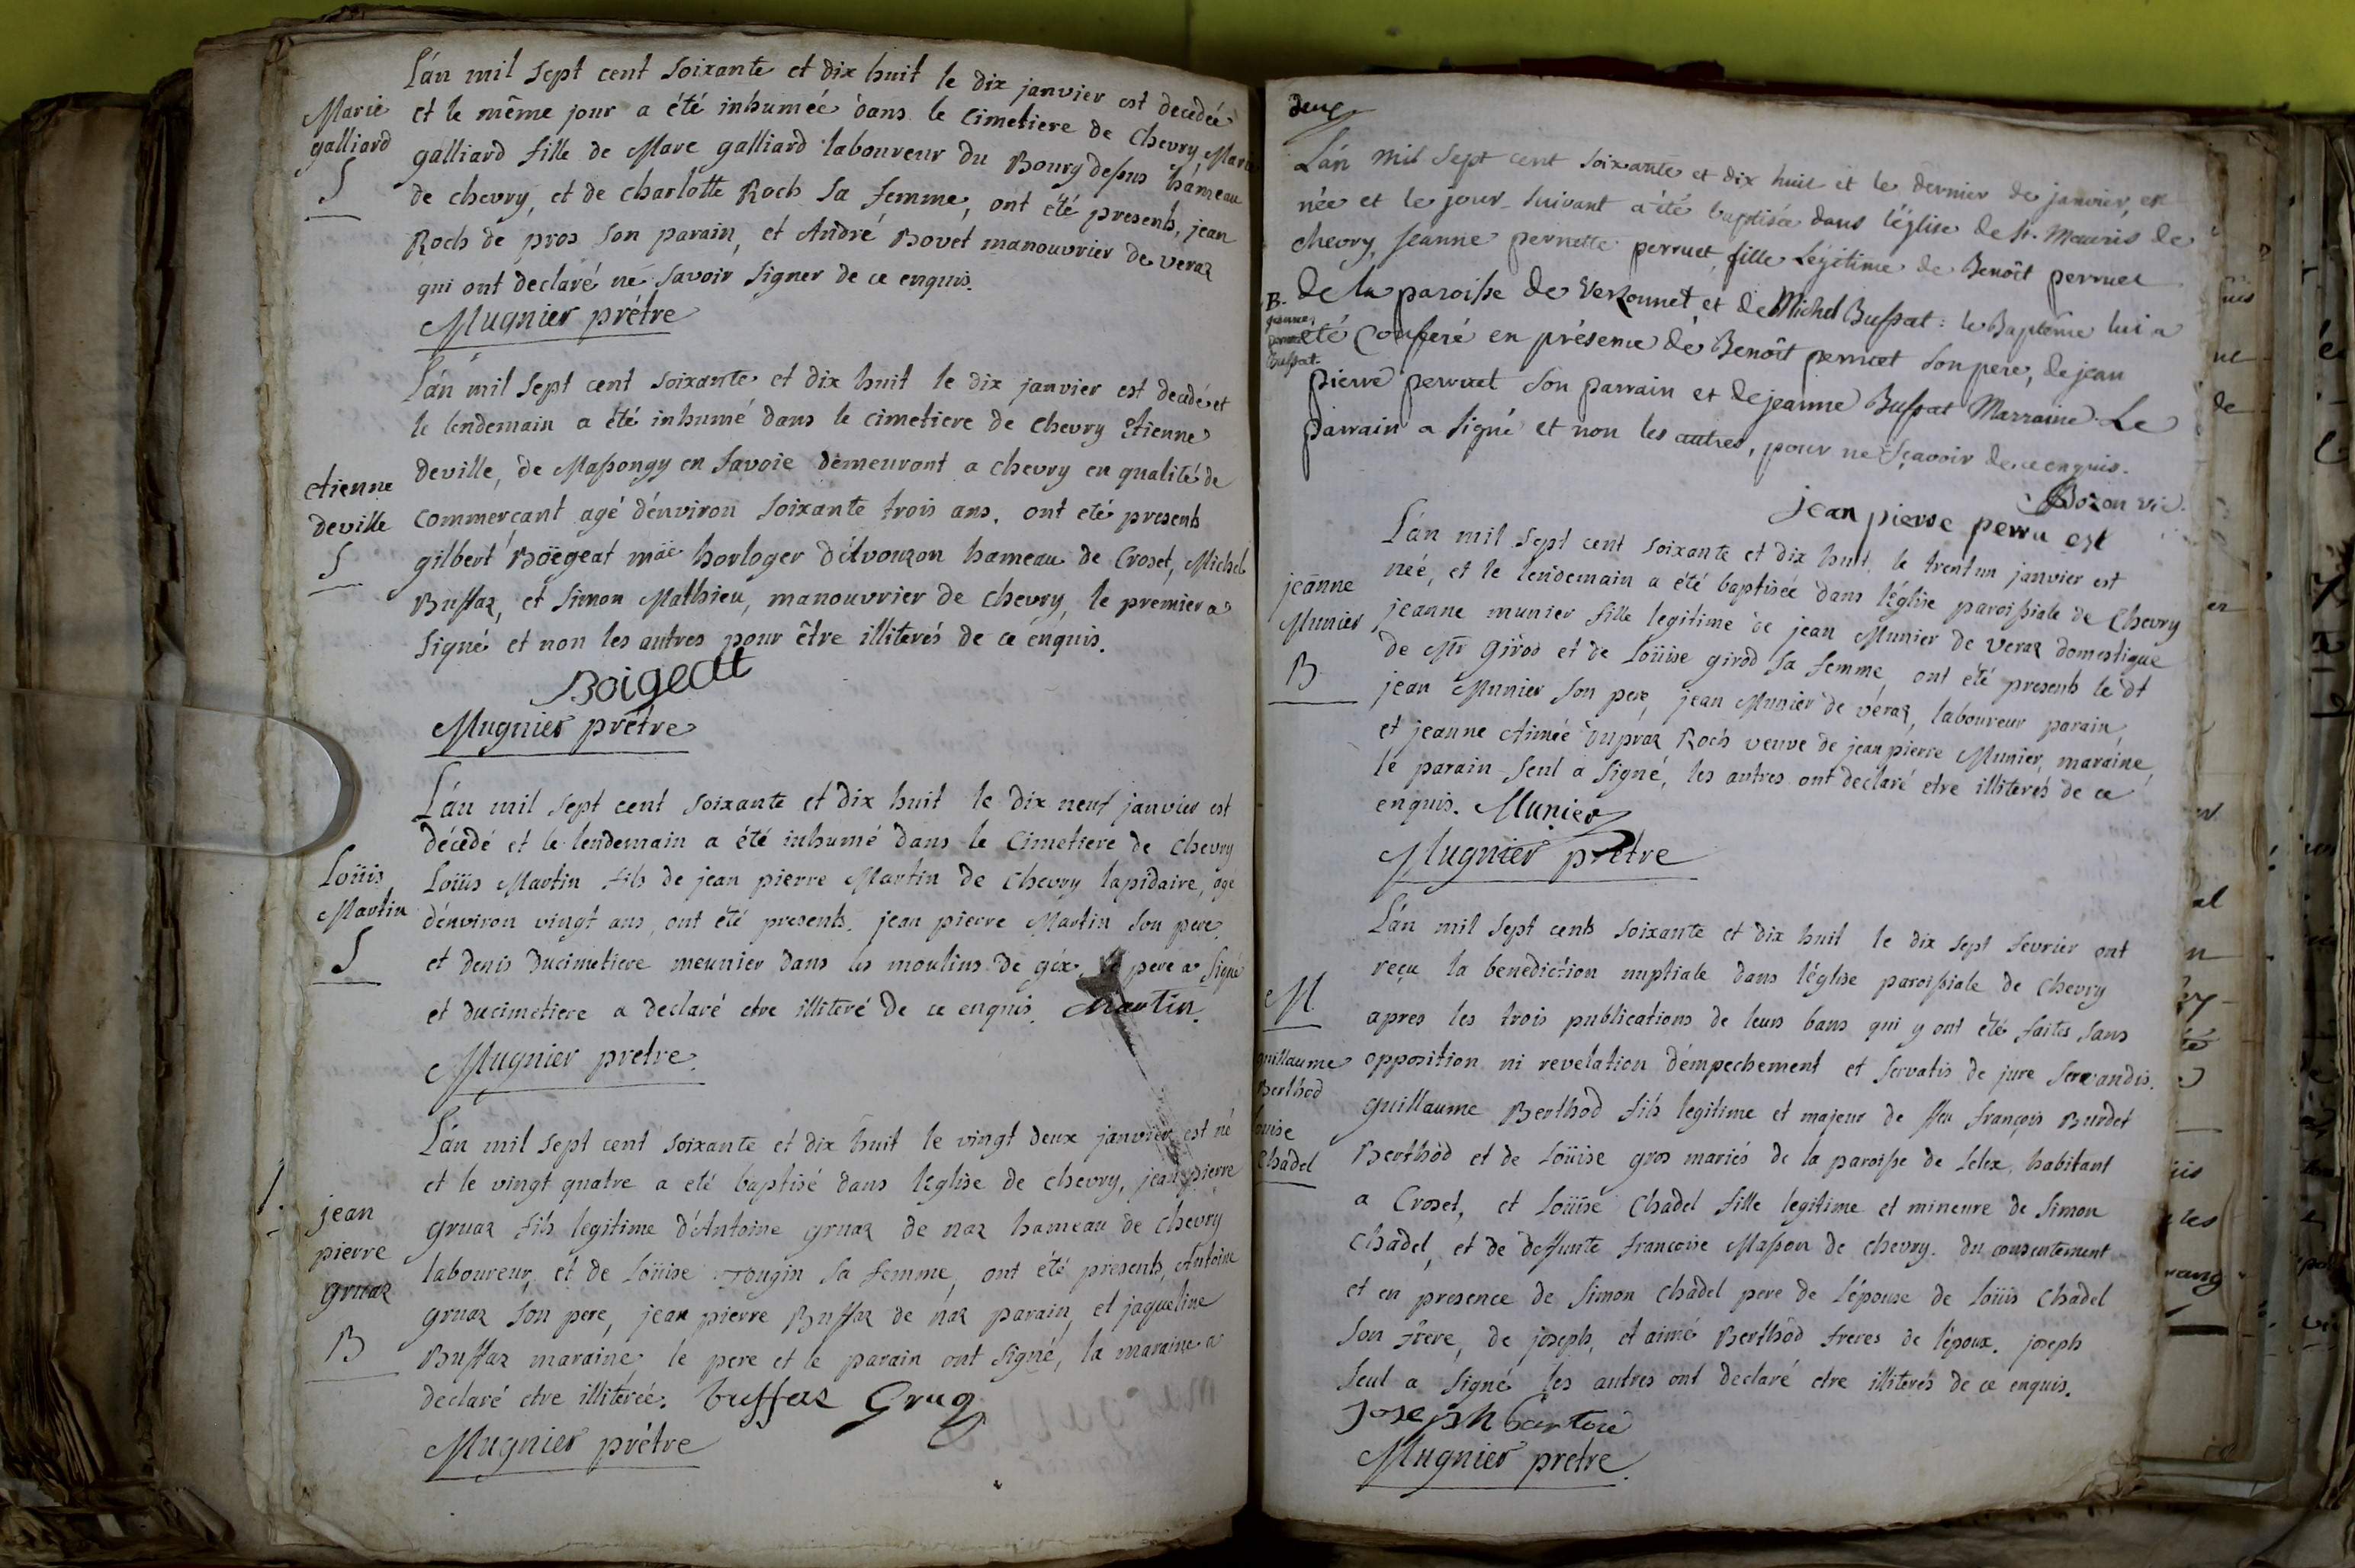 L'án mil sept cent soixante et dix huit le dix janvier est decedée
Marie
galliard
S
et le même jour a été inhumée dans le Cimetiere de Chevry Marie
galliard fille de Marc galliard laboureur du Bourg dessus hámeau
de chevry, et de charlotte Roch sa femme, ont été presents, jean
Roch de pros son parain, et André Bovet manouvrier de veraz
qui ont declaré ne savoir signer de ce enquis.
Mugnier prêtre
L'án mil sept cent soixante et dix huit le dix janvier est decedé et
le lendemain a été inhumé dans le cimetiere de chevry Etienne
Etienne
deville
S
deville, de Massongy en Savoie demeurant a chevry en qualité de
commerçant agé d'environ soixante trois ans. ont eté presents
gilbert Boëgeat maë horloger d'Avouzon hameau de Croset, Michel
Buffaz, et simon Mathieu, manouvrier de chevry, le premier a
signé et non les autres pour être illiterés de ce enquis.
Boigeat
Mugnier prêtre
L'án mil sept cent soixante et dix huit le dix neuf janvier est
décedé et le lendemain a été inhumé dans le Cimetiere de chevry
Loüis
Martin
S
Loüis Martin fils de jean pierre Martin de chevry lapidaire, agé
d'environ vingt ans, ont été presents. jean pierre Martin son pere
et denis Ducimetiere meunier dans les moulins de gex, le pere a signé
et ducimetiere a declaré etre illiteré de ce enquis. Martin.
Mugnier pretre.
L'án mil sept cent soixante et dix huit le vingt deux janvier est né
et le vingt quatre a eté baptisé dans l'église de chevry, jean pierre
jean
pierre
gruaz
B
gruaz fils legitime d'Antoine gruaz de naz hameau de chevry
laboureur, et de Loüise Tougin sa femme, ont été presents, Antoine
gruaz son pere, jean pierre Buffaz de naz parain, et jaqueline
Buffaz maraine, le pere et le parain ont signé, la maraine a
declaré etre illiterée. buffaz Gruaz
Mugnier prêtre
deux
L'án mil sept cent soixante et dix huit et le dernier de janvier, est
née et le jour suivant a été baptisée dans l'église de St. Mauris de
chevry, jeanne pernette perruet, fille Légitime de Benoît perruet
B.
jeanne
Bussat.
de la paroisse de Versonnet et de Michel Bussat: le Baptême lui a
été Conferé en présence de Benoît perruet son pere, de jean
pierre perruet son parrain et de jeanne Bussat Marraine. Le
parrain a signé et non les autres, pour ne sçavoir de ce enquis.
Bozon vic.
jean pierre perru est
L'án mil sept cent soixante et dix huit, le trent un janvier est
neé, et le lendemain a été baptisée dans l'église paroissiale de Chevry
jeanne
Munier
B
jeanne munier fille legitime de jean Munier de veraz domestique
de Mr girod et de Loüise girod sa femme ont été presents le dt
jean Munier son pere, jean Munier de veraz, laboureur parain,
et jeanne Aimée Dupraz Roch veuve de jean pierre Munier, maraine,
le parain seul a signé, les autres ont declaré etre illiterés de ce
enquis. Munier
Mugnier prêtre
L'án mil sept cents soixante et dix huit le dix sept fevrier ont
reçu la benediction nuptiale dans l'église paroissiale de Chevry
M
guillaume
Berthod
Louise
Chadel
apres les trois publications de leurs bans qui y ont été faites sans
opposition ni revelation d'empechement et servatis de jure servandis.
guillaume Berthod fils legitime et majeur de ffeu françois Burdet
Berthod et de Loüise gros mariés de la paroisse de Lelex, habitant
a Croset, et Loüise Chadel fille legitime et mineure de Simon
Chadel, et de deffunte francoise Masson de chevry. du consentement
et en presence de Simon Chadel pere de l'épouse de Loüis Chadel
son frere, de joseph, et aimé Berthod freres de l'époux. joseph
seul a signé les autres ont declaré etre illiterés de ce enquis.
Joseph
Mugnier pretre.